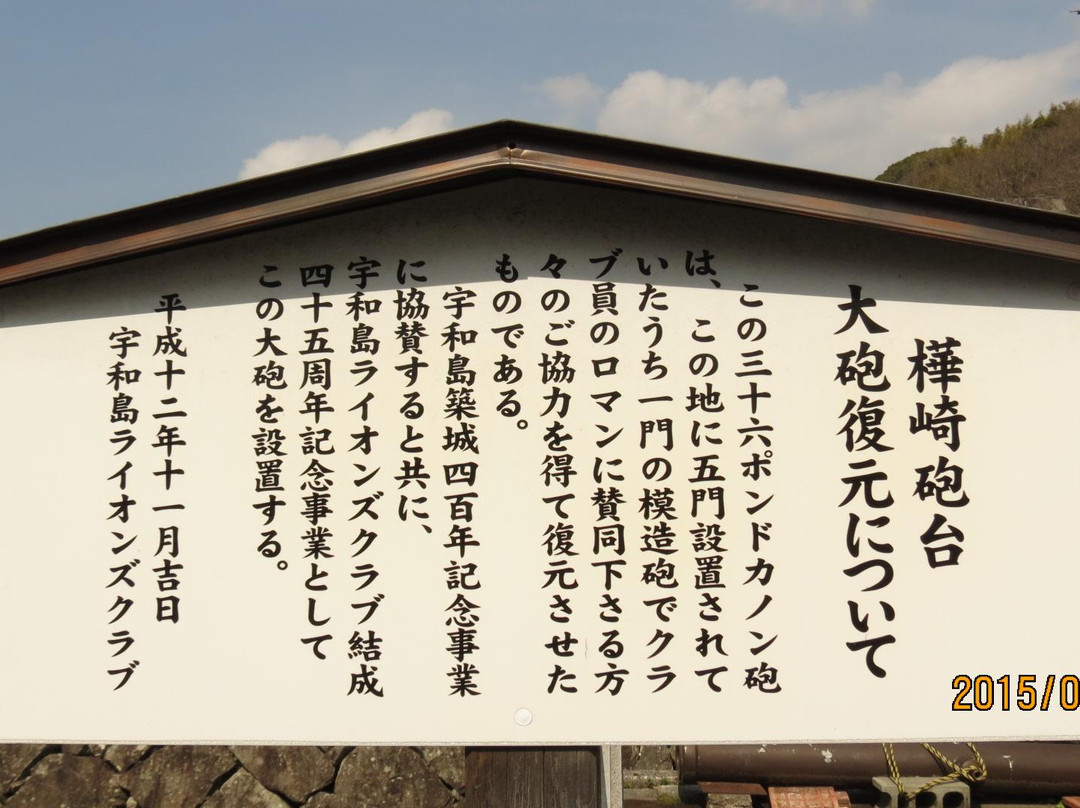 樺崎砲台
大砲復元について
この三十六ポンドカノン砲
は、この地に五門設置されて
いたうち一門の模造砲でクラ
ブ員のロマンに賛同下さる方
々のご協力を得て復元させた
ものである。
宇和島築城四百年記念事業
に協賛すると共に、
宇和島ライオンズクラブ結成
四十五周年記念事業として
この大砲を設置する。
平成十二年十一月吉日
宇和島ライオンズクラブ
2015/0